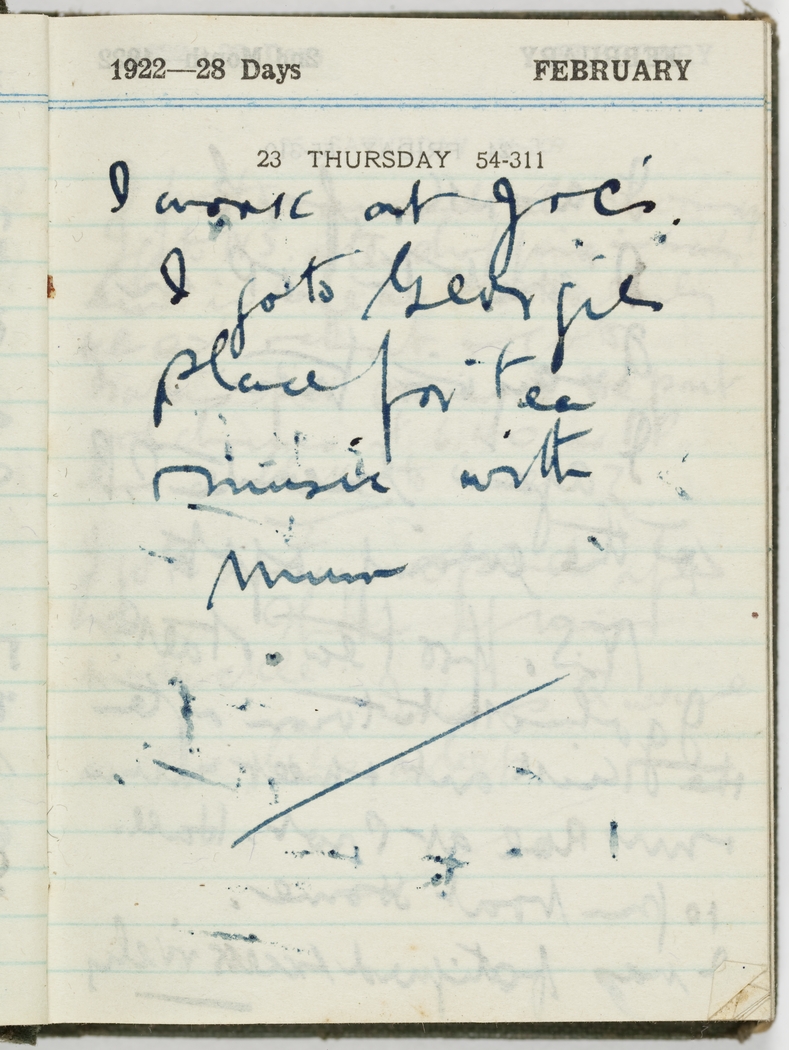 1922—28 Days FEBRUARY
23 THURSDAY 54-311
I work at Joe's.
I go to Georgie's
place for tea
music with
Mum